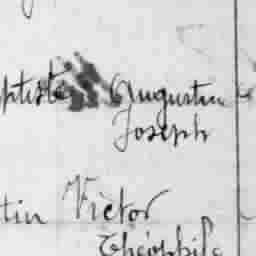 ptiste Augustin
Joseph
tin Victor
Théophile